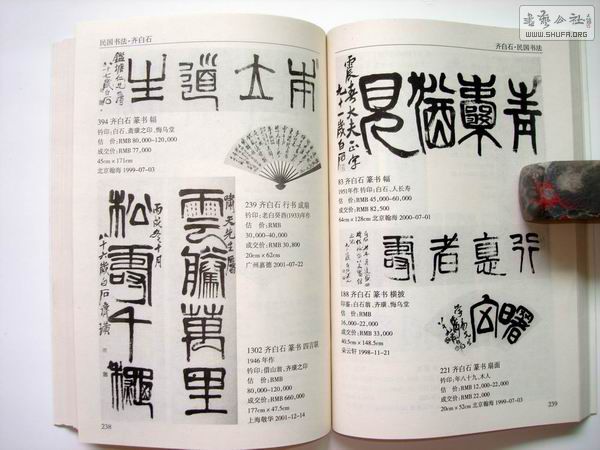 書藝公社
WWW.SHUFA.ORG
民国书法·齐白石
生道立本
394 齐白石 篆书 幅
钤印：白石、齐璜之印、悔乌堂
估　价：RMB 80,000–120,000
成交价：RMB 77,000
45cm×171cm
北京翰海 1999-07-03
239 齐白石 行书 成扇
钤印：老白癸酉(1933)年作
估　价：RMB
30,000–40,000
成交价：RMB 30,800
20cm×62cm
广州嘉德 2001-07-22
嘯天先生屬
雲騰萬里
松壽千穐
丙戌冬十月
八十六歲白石齊璜
1302 齐白石 篆书 四言联
1946 年作
钤印：借山翁、齐璜之印
估　价：RMB
80,000–120,000
成交价：RMB 660,000
177cm×47.5cm
上海敬华 2001-12-14
238
齐白石·民国书法
青囊猶見
震春大夫正字
九十一歲白石
83 齐白石 篆书 幅
1951年作 钤印：白石、人长寿
估　价：RMB 45,000–60,000
成交价：RMB 50,600
64cm×128cm 北京翰海 2000-07-01
188 齐白石 篆书 横披
印鉴：白石翁、齐璜、悔乌堂
估　价：RMB
16,000–22,000
成交价：RMB 33,000
40.5cm×148.5cm
朵云轩 1998-11-21
221 齐白石 篆书 扇面
钤印：年八十九、木人
估　价：RMB 12,000–22,000
成交价：RMB 22,000
20cm×52cm 北京翰海 1999-07-03
239